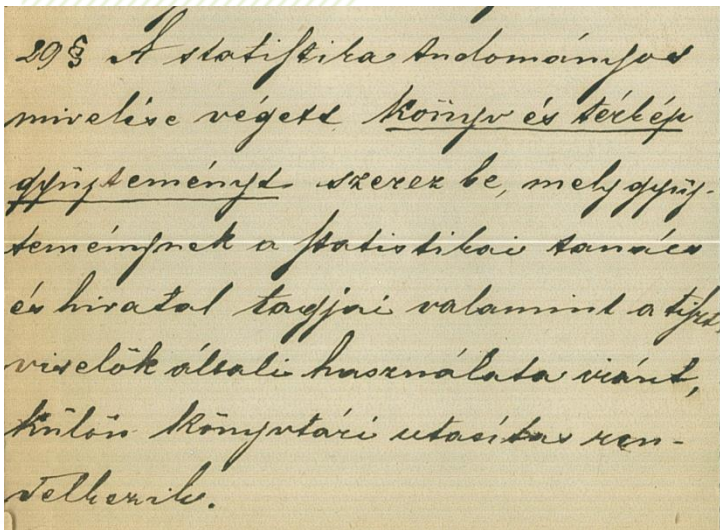 29 § A statistika tudományos
mivelése végett könyv és térkép
gyűjteményt szerez be, mely gyűj-
teménynek a statistikai tanács
és hivatal tagjai valamint a tiszt
viselők általi használata iránt,
külön könyvtári utasitás ren-
delkezik.